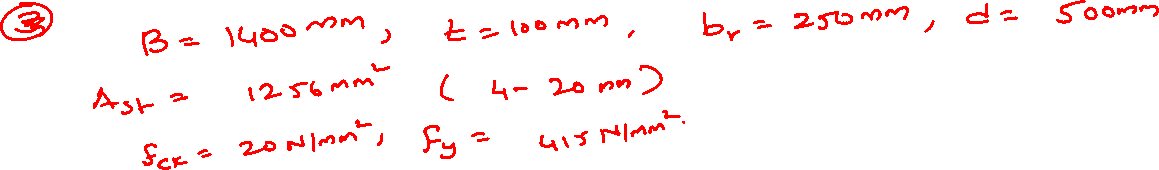 ③ B = 1400 mm, t = 100 mm, br = 250 mm, d = 500mm
Ast = 1256 mm² ( 4- 20 mm)
fck = 20 N/mm², fy = 415 N/mm².